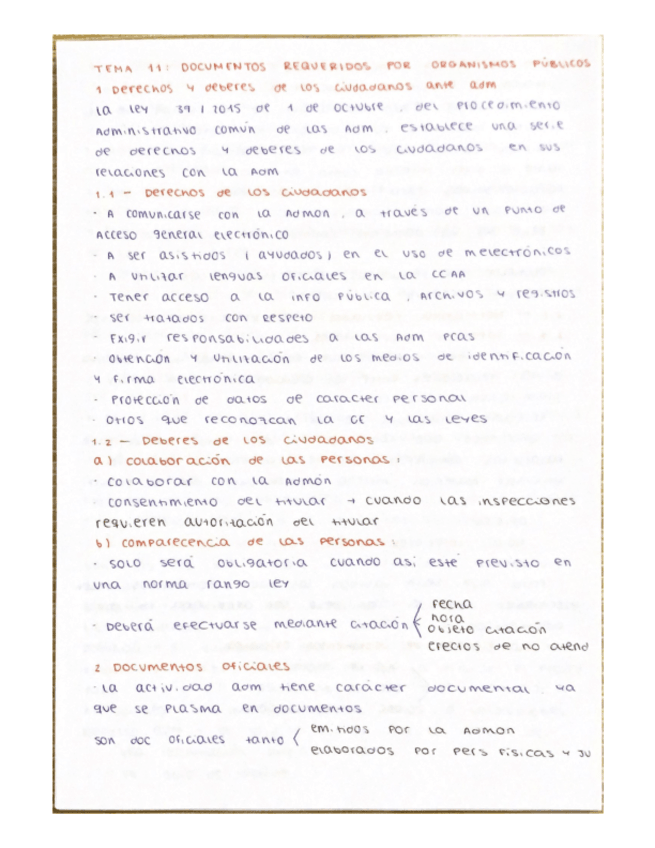 TEMA 11: DOCUMENTOS REQUERIDOS POR ORGANISMOS PÚBLICOS
1 Derechos y deberes de los ciudadanos ante adm
La Ley 39/2015 de 1 de octubre, del Procedimiento
Administrativo Común de las Adm, establece una serie
de derechos y deberes de los ciudadanos en sus
relaciones con la Adm
1.1 - Derechos de los ciudadanos
· A comunicarse con la Admon, a través de un Punto de
Acceso general electrónico
· A ser asistidos (ayudados) en el uso de m electrónicos
· A utilizar lenguas oficiales en la CCAA
· Tener acceso a la info Pública, Archivos y registros
· ser tratados con respeto
· Exigir responsabilidades a las Adm pcas
· Obtención y utilitación de los medios de identificación
y firma electrónica
· Protección de datos de caracter personal
· otros que reconozcan la CE y las leyes
1.2 - Deberes de los ciudadanos
a) colaboración de las personas:
· colaborar con la Admón
· consentimiento del titular → cuando las inspecciones
requieren autorización del titular
b) comparecencia de las personas:
· solo será obligatoria cuando así esté previsto en
una norma rango ley
· Deberá efectuarse mediante citación { fecha
hora
objeto citación
efectos de no atend
2 Documentos oficiales
· la actividad adm tiene carácter documental, ya
que se plasma en documentos
son doc oficiales tanto { emitidos por la Admon
elaborados por pers físicas y ju